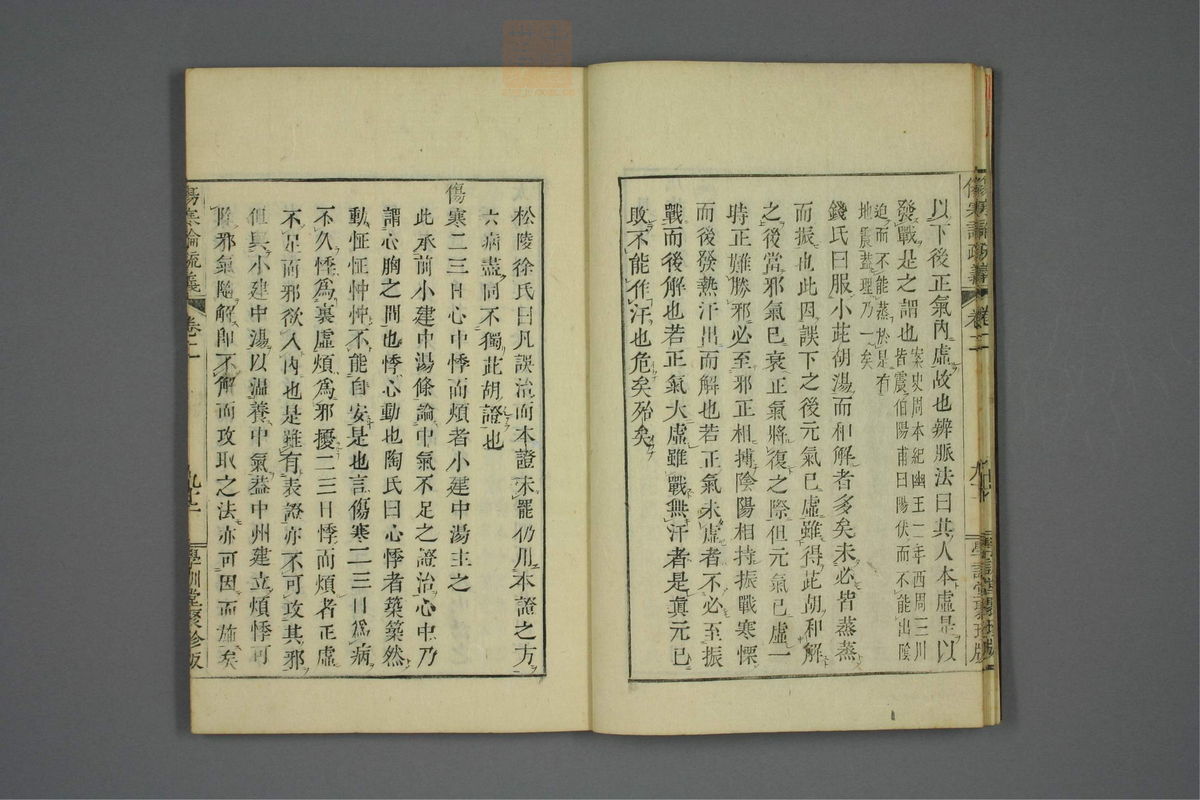 傷寒論疏義
卷二
學訓堂聚珍版
以下後正氣內虛故也辨脈法曰其人本虛是以
發戰是之謂也
案史周本紀幽王二年西周三川
皆震伯陽甫曰陽伏而不能出陰
迫而不能蒸於是有
地震蓋理乃一矣
錢氏曰服小茈胡湯而和解者多矣未必皆蒸蒸
而振也此因誤下之後元氣已虛雖得茈胡和解
之後當邪氣已衰正氣將復之際但元氣已虛一
時正難勝邪必至邪正相搏陰陽相持振戰寒慄
而後發熱汗出而解也若正氣未虛者不必至振
戰而後解也若正氣大虛雖戰無汗者是眞元已
敗不能作汗也危矣殆矣
松陵徐氏曰凡誤治而本證未罷仍用本證之方
六病盡同不獨茈胡證也
傷寒二三日心中悸而煩者小建中湯主之
此承前小建中湯條論中氣不足之證治心中乃
謂心胸之間也悸心動也陶氏曰心悸者築築然
動怔怔忡忡不能自安是也言傷寒二三日爲病
不久悸爲裏虛煩爲邪擾二三日悸而煩者正虛
不足而邪欲入內也是雖有表證亦不可攻其邪
但與小建中湯以溫養中氣蓋中州建立煩悸可
除邪氣隨解卽不解而攻取之法亦可因而施矣
傷寒論疏義
卷二
學訓堂聚珍版